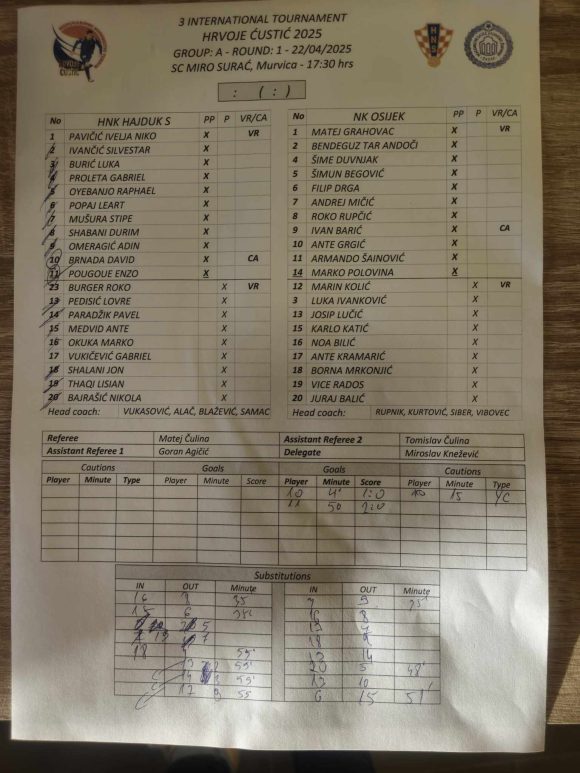 3 INTERNATIONAL TOURNAMENT
HRVOJE ĆUSTIĆ 2025
GROUP: A - ROUND: 1 - 22/04/2025
SC MIRO SURAĆ, Murvica - 17:30 hrs
: ( : )
No HNK HAJDUK S PP P VR/CA
1 PAVIČIĆ IVELJA NIKO X VR
2 IVANČIĆ SILVESTAR X
3 BURIĆ LUKA X
4 PROLETA GABRIEL X
5 OYEBANJO RAPHAEL X
6 POPAJ LEART X
7 MUŠURA STIPE X
8 SHABANI DURIM X
9 OMERAGIĆ ADIN X
10 BRNADA DAVID X CA
11 POUGOUE ENZO X
23 BURGER ROKO X VR
13 PEDISIĆ LOVRE X
14 PARADŽIK PAVEL X
15 MEDVID ANTE X
16 OKUKA MARKO X
17 VUKIČEVIĆ GABRIEL X
18 SHALANI JON X
19 THAQI LISIAN X
20 BAJRAŠIĆ NIKOLA X
Head coach: VUKASOVIĆ, ALAČ, BLAŽEVIĆ, SAMAC
No NK OSIJEK PP P VR/CA
1 MATEJ GRAHOVAC X VR
2 BENDEGUZ TAR ANDOČI X
4 ŠIME DUVNJAK X
5 ŠIMUN BEGOVIĆ X
6 FILIP DRGA X
7 ANDREJ MIČIĆ X
8 ROKO RUPČIĆ X
9 IVAN BARIĆ X CA
10 ANTE GRGIĆ X
11 ARMANDO ŠAINOVIĆ X
14 MARKO POLOVINA X
12 MARIN KOLIĆ X VR
3 LUKA IVANKOVIĆ X
13 JOSIP LUČIĆ X
15 KARLO KATIĆ X
16 NOA BILIĆ X
17 ANTE KRAMARIĆ X
18 BORNA MRKONJIĆ X
19 VICE RADOS X
20 JURAJ BALIĆ X
Head coach: RUPNIK, KURTOVIĆ, SIBER, VIBOVEC
Referee Matej Čulina Assistant Referee 2 Tomislav Čulina
Assistant Referee 1 Goran Agičić Delegate Miroslav Knežević
Cautions Goals Goals Cautions
Player Minute Type Player Minute Score Player Minute Score Player Minute Type
10 4' 1:0 10 15 YC
11 50 2:0
Substitutions
IN OUT Minute IN OUT Minute
16 35
15 6
18 55'
55'
14 55'
17 55
18 9
13 14
20 5 48'
10
6 15 51'